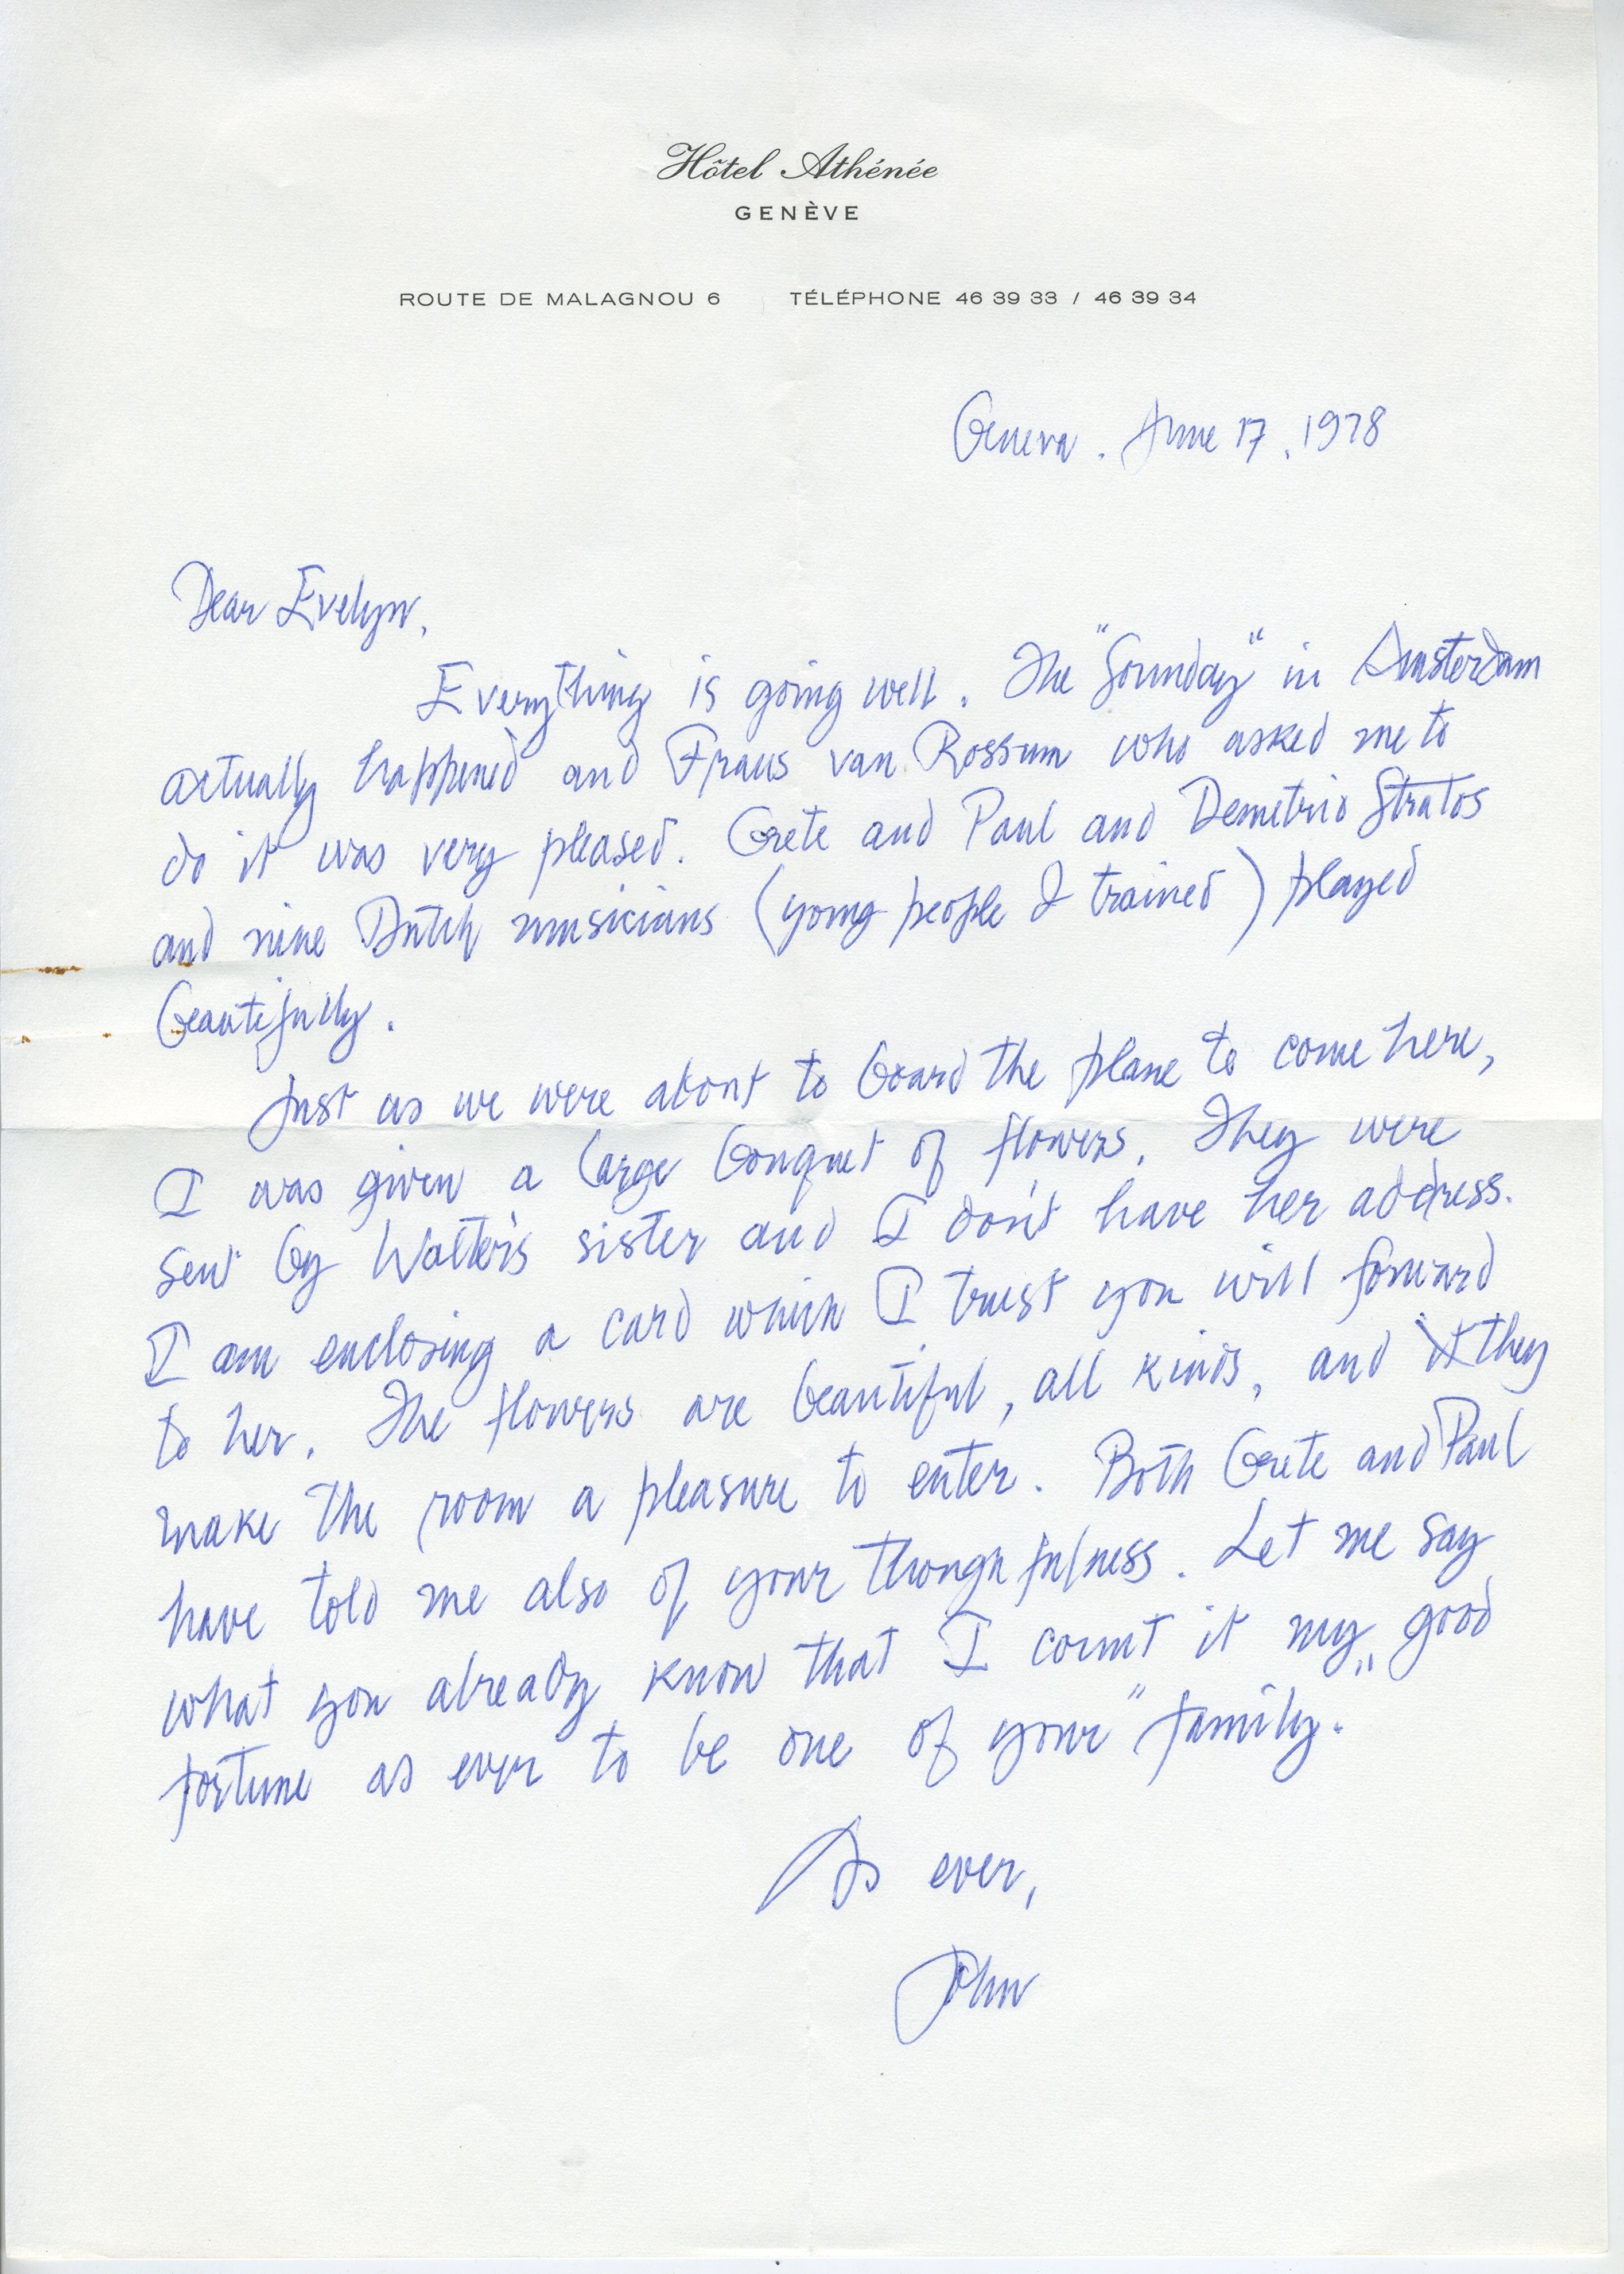 Hôtel Athénée
GENÈVE
ROUTE DE MALAGNOU 6 TÉLÉPHONE 46 39 33 / 46 39 34
Geneva. June 17, 1978
Dear Evelyn,
Everything is going well. The "Sounday" in Amsterdam
actually happened and Frans van Rossum who asked me to
do it was very pleased. Grete and Paul and Demetrio Stratos
and nine Dutch musicians (young people I trained) played
beautifully.
Just as we were about to board the plane to come here,
I was given a large bouquet of flowers. They were
sent by Walter's sister and I don't have her address.
I am enclosing a card which I trust you will forward
to her. The flowers are beautiful, all kinds, and it they
make the room a pleasure to enter. Both Grete and Paul
have told me also of your thoughtfulness. Let me say
what you already know that I count it my good
fortune as ever to be one of your "family."
As ever,
John